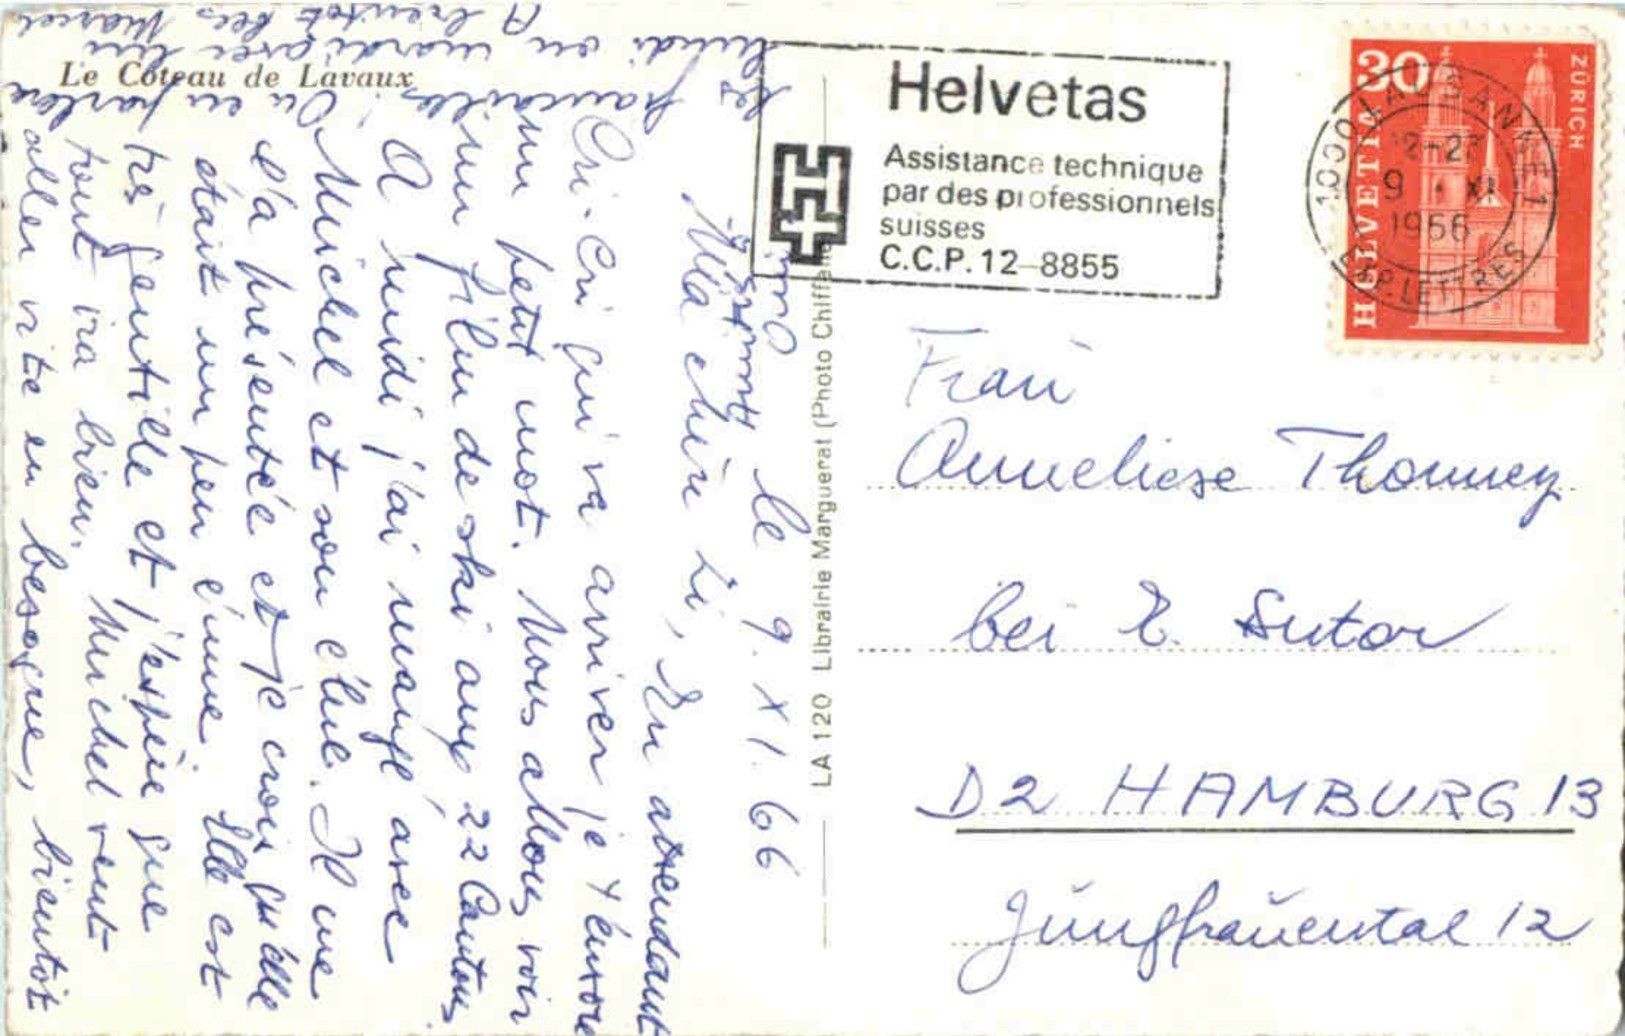 Le Coteau de Lavaux
Helvetas
Assistance technique
par des professionnels
suisses
C.C.P. 12-8855
30
HELVETIA
ZÜRICH
1000 LAUSANNE 1
12-27
9. XI
1966
EXP. LETTRES
LA 120 Librairie Marguerat (Photo Chiffelle)
Frau
Anneliese Thonney
bei E. Sutor
D2 HAMBURG 13
Jungfrauental 12
le 9. XI. 66
Ma chère Li, En attendant
Cri-Cri qui va arriver je t'envoie
un petit mot. Nous allons voir
un film de ski aux 22 Cantons.
A midi j'ai mangé avec
Michel et son élue. Il me
l'a présentée et je crois qu'elle
était un peu émue. Elle est
très gentille et j'espère que
tout ira bien. Michel veut
aller vite en besogne, bientôt
les fiançailles! On en parlera
lundi ou mardi avec lui
A bientôt bec Marcel